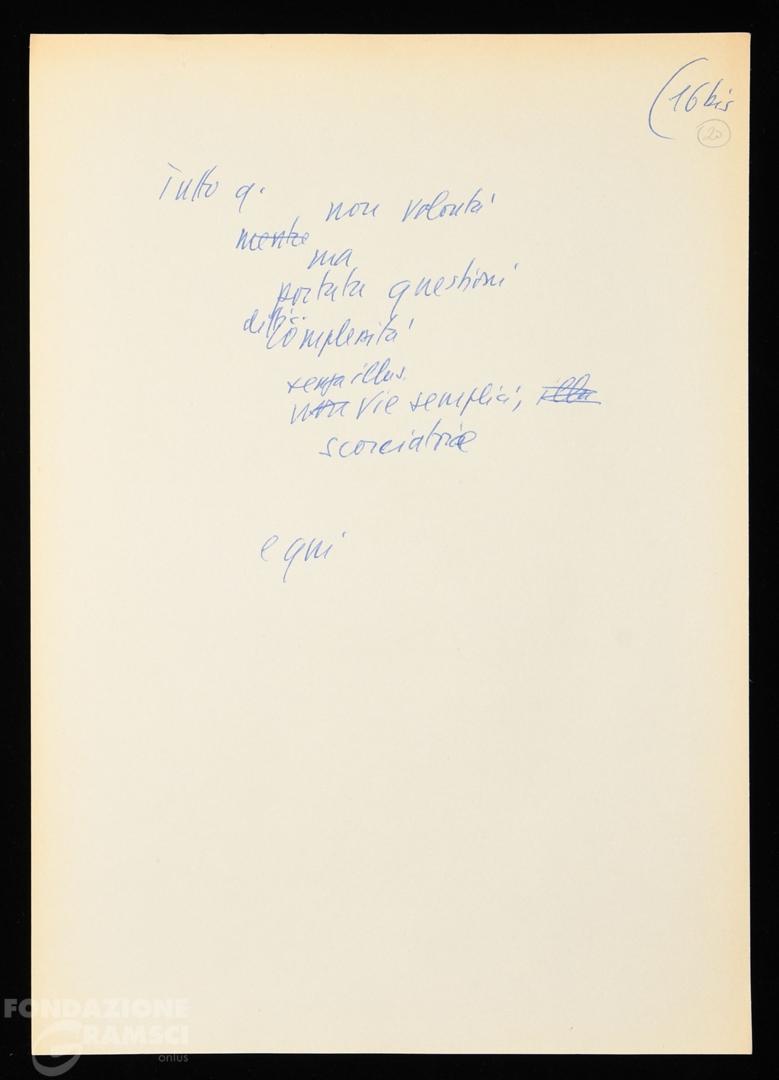 (16 bis
20
Tutto q.
non volontà
mentre
ma
portata questioni
diffic.
complessità
senza illus.
non vie semplici, illu
scorciatoie
e qui
FONDAZIONE
GRAMSCI
onlus